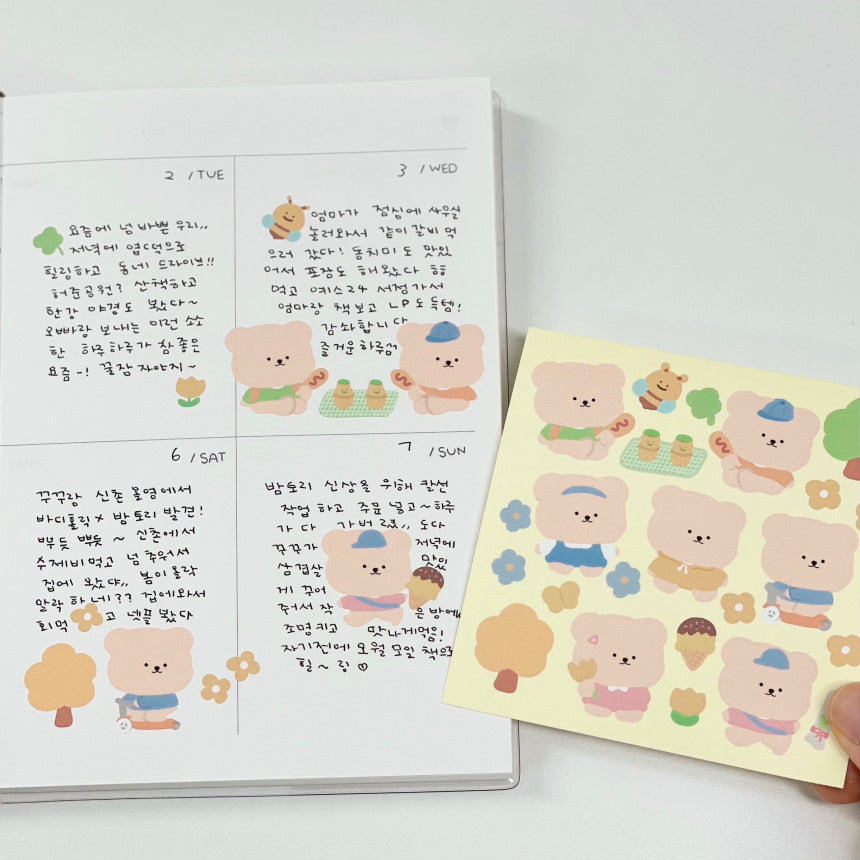 2 / TUE
요즘에 넘 바쁜 우리,,
저녁에 엽떡으로
힐링하고 동네 드라이브!!
허준공원? 산책하고
한강 야경도 봤다~
오빠랑 보내는 이런 소소
한 하루하루가 참 좋은
요즘 -! 꿀잠 자야지~
3 / WED
엄마가 점심에 사무실
놀러와서 같이 갈비 먹
으러 갔다! 동치미도 맛있
어서 포장도 해왔다 흠흠
먹고 예스24 서점가서
엄마랑 책보고 LP도 득템!
감솨합니다
즐거운하루섬
6 / SAT
꾸꾸랑 신촌 올영에서
바디홀릭 x 밤토리 발견!
뿌듯 뿌듯 ~ 신촌에서
수제비먹고 넘 추워서
집에 봤냐,, 봄이 올락
말락 하네?? 집에와서
회먹 고 넷플 봤다
7 / SUN
밤토리 신상을 위해 칼선
작업 하고 주문 넣고~하루
가 다
꾸꾸가 저녁에
삼겹살 맛있
게 구어
주어서 작 은방에
조명키고 맛나게먹음!
자기전에 오월 모일 책으로
힐~링 ♡